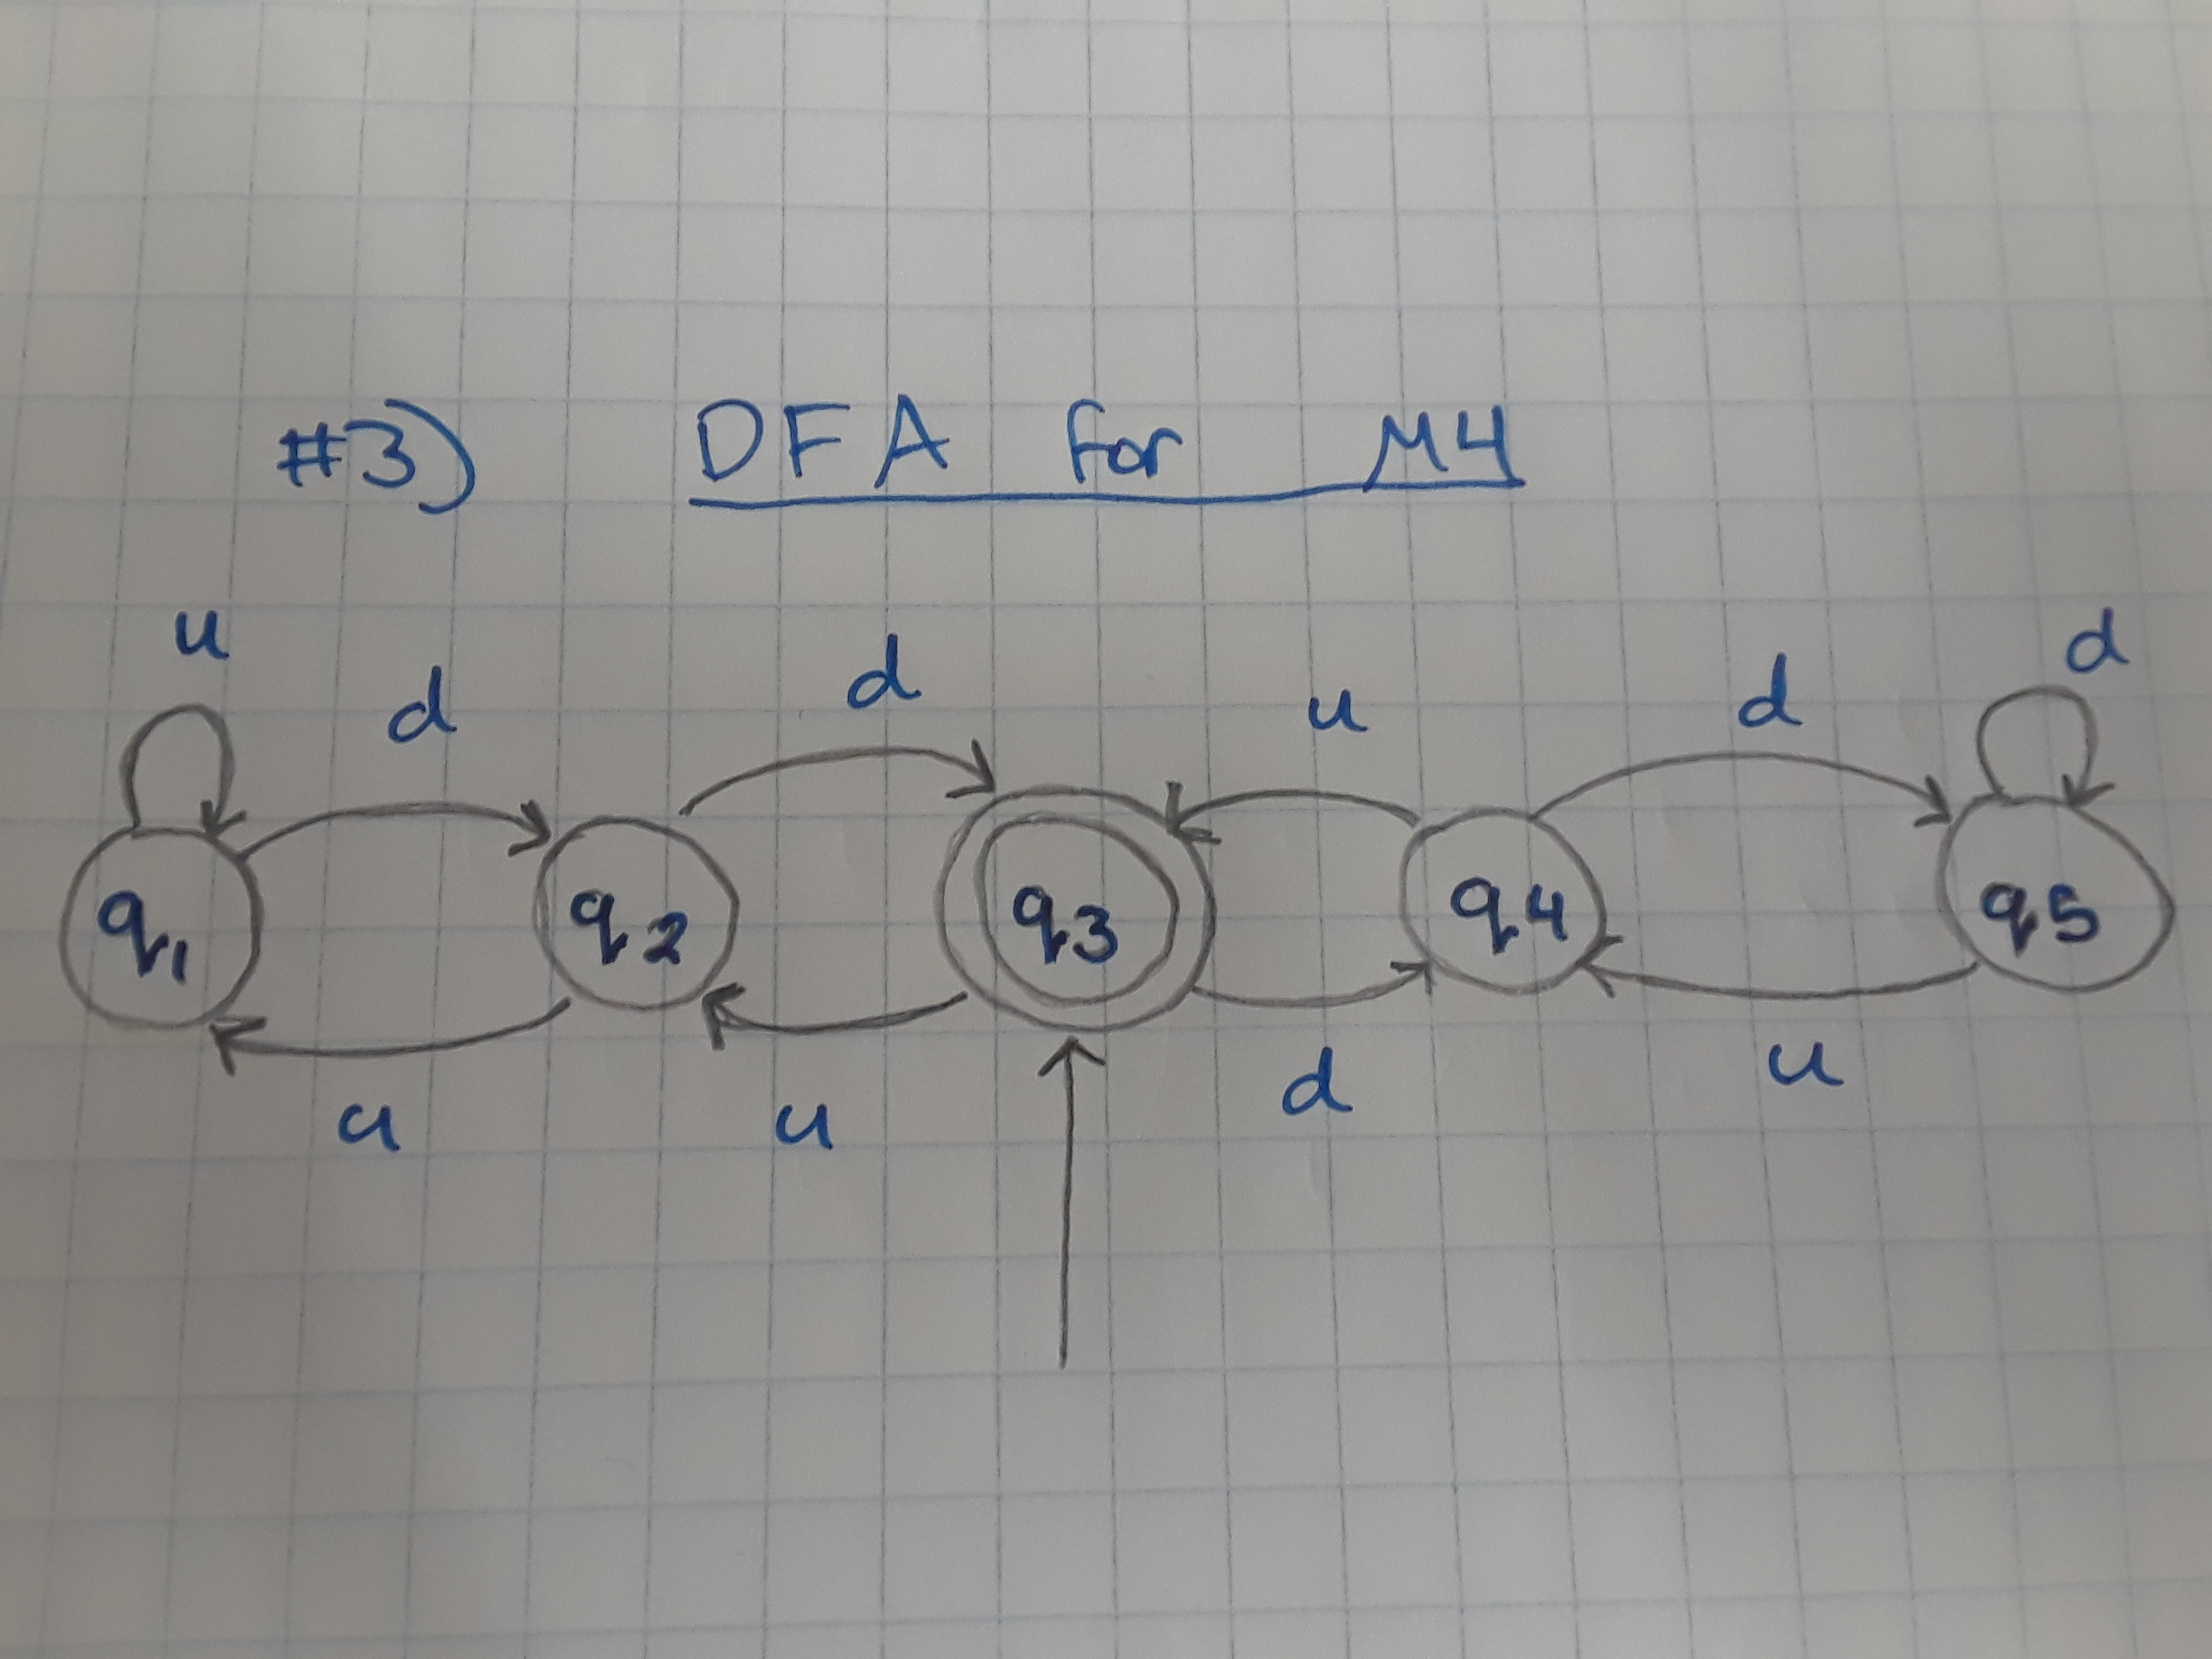 #3) DFA for M4
u d d u d d
q1 q2 q3 q4 q5
u u d u